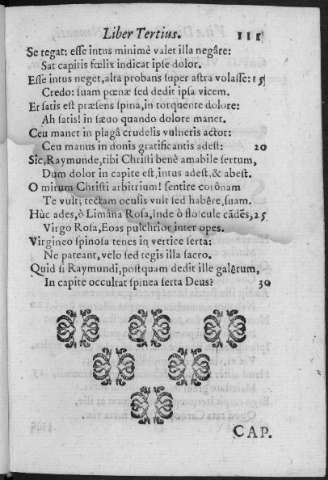 Liber Tertius. 111
Se regat: esse intus minimè valet illa negāre:
Sat capitis fœlix indicat ipse dolor.
Esse intus neget, alta probans super astra volasse: 15
Credo: suam pœnæ sed dedit ipsa vicem.
Et satis est præsens spina, in torquente dolore:
Ah satis! in sæuo quando dolore manet.
Ceu manet in plagâ crudelis vulneris actor:
Ceu manus in donis gratificantis adest: 20
Sic, Raymunde, tibi Christi benè amabile sertum,
Dum dolor in capite est, intus adest, & abest.
O mirum Christi arbitrium! sentire corōnam
Te vult; tectam oculis vult sed habēre, suam.
Hùc ades, ò Limāna Rosa, inde ò floscule cādēs, 25
Virgo Rosa, Eoas pulchrior inter opes.
Virgineo spinosa tenes in vertice serta:
Ne pateant, velo sed tegis illa sacro.
Quid si Raymundi, postquam dedit ille galērum,
In capite occultat spinea serta Deus? 30
CAP.